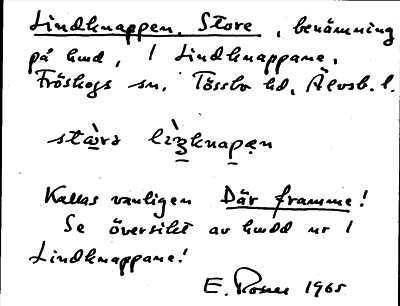 Lindknappen, Store, benämning
på hmd, 1 Lindknappane,
Fröskogs sn, Tössbo hd, Älvsb. l.
Kallas vanligen Där framme!
Se översikt av hmdd nr 1
Lindknappane!
E. Rosell 1965